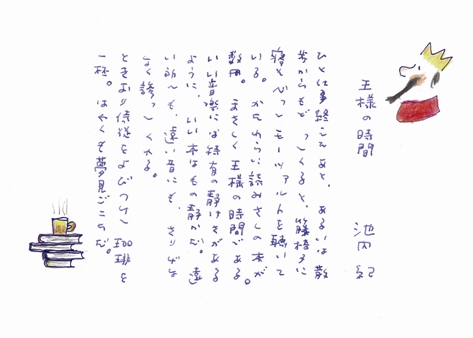 王様の時間
池内 紀
ひと仕事終えたあと、あるいは散
歩からもどってくると、籐椅子に
寝そべってモーツァルトを聴いて
いる。かたわらに読みさしの本が
数冊。まさしく王様の時間である。
いい音楽には特有の静けさがある
ように、いい本はもの静かだ。遠
い所へも、遠い昔にも、さりげな
く誘ってくれる。
ときおり侍従をよびつけて珈琲を
一杯。はやくも夢見ごこちだ。